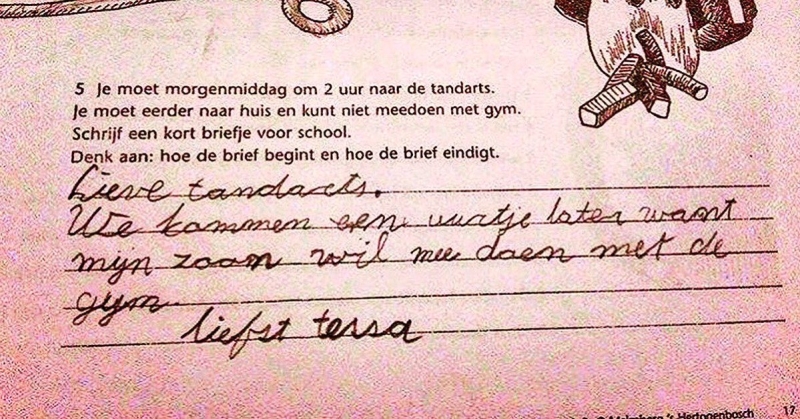 5 Je moet morgenmiddag om 2 uur naar de tandarts.
Je moet eerder naar huis en kunt niet meedoen met gym.
Schrijf een kort briefje voor school.
Denk aan: hoe de brief begint en hoe de brief eindigt.
Lieve tandarts.
We kommen een uurtje later want
mijn zoon wil mee doen met de
gym.
liefst tessa
's Hertogenbosch
17